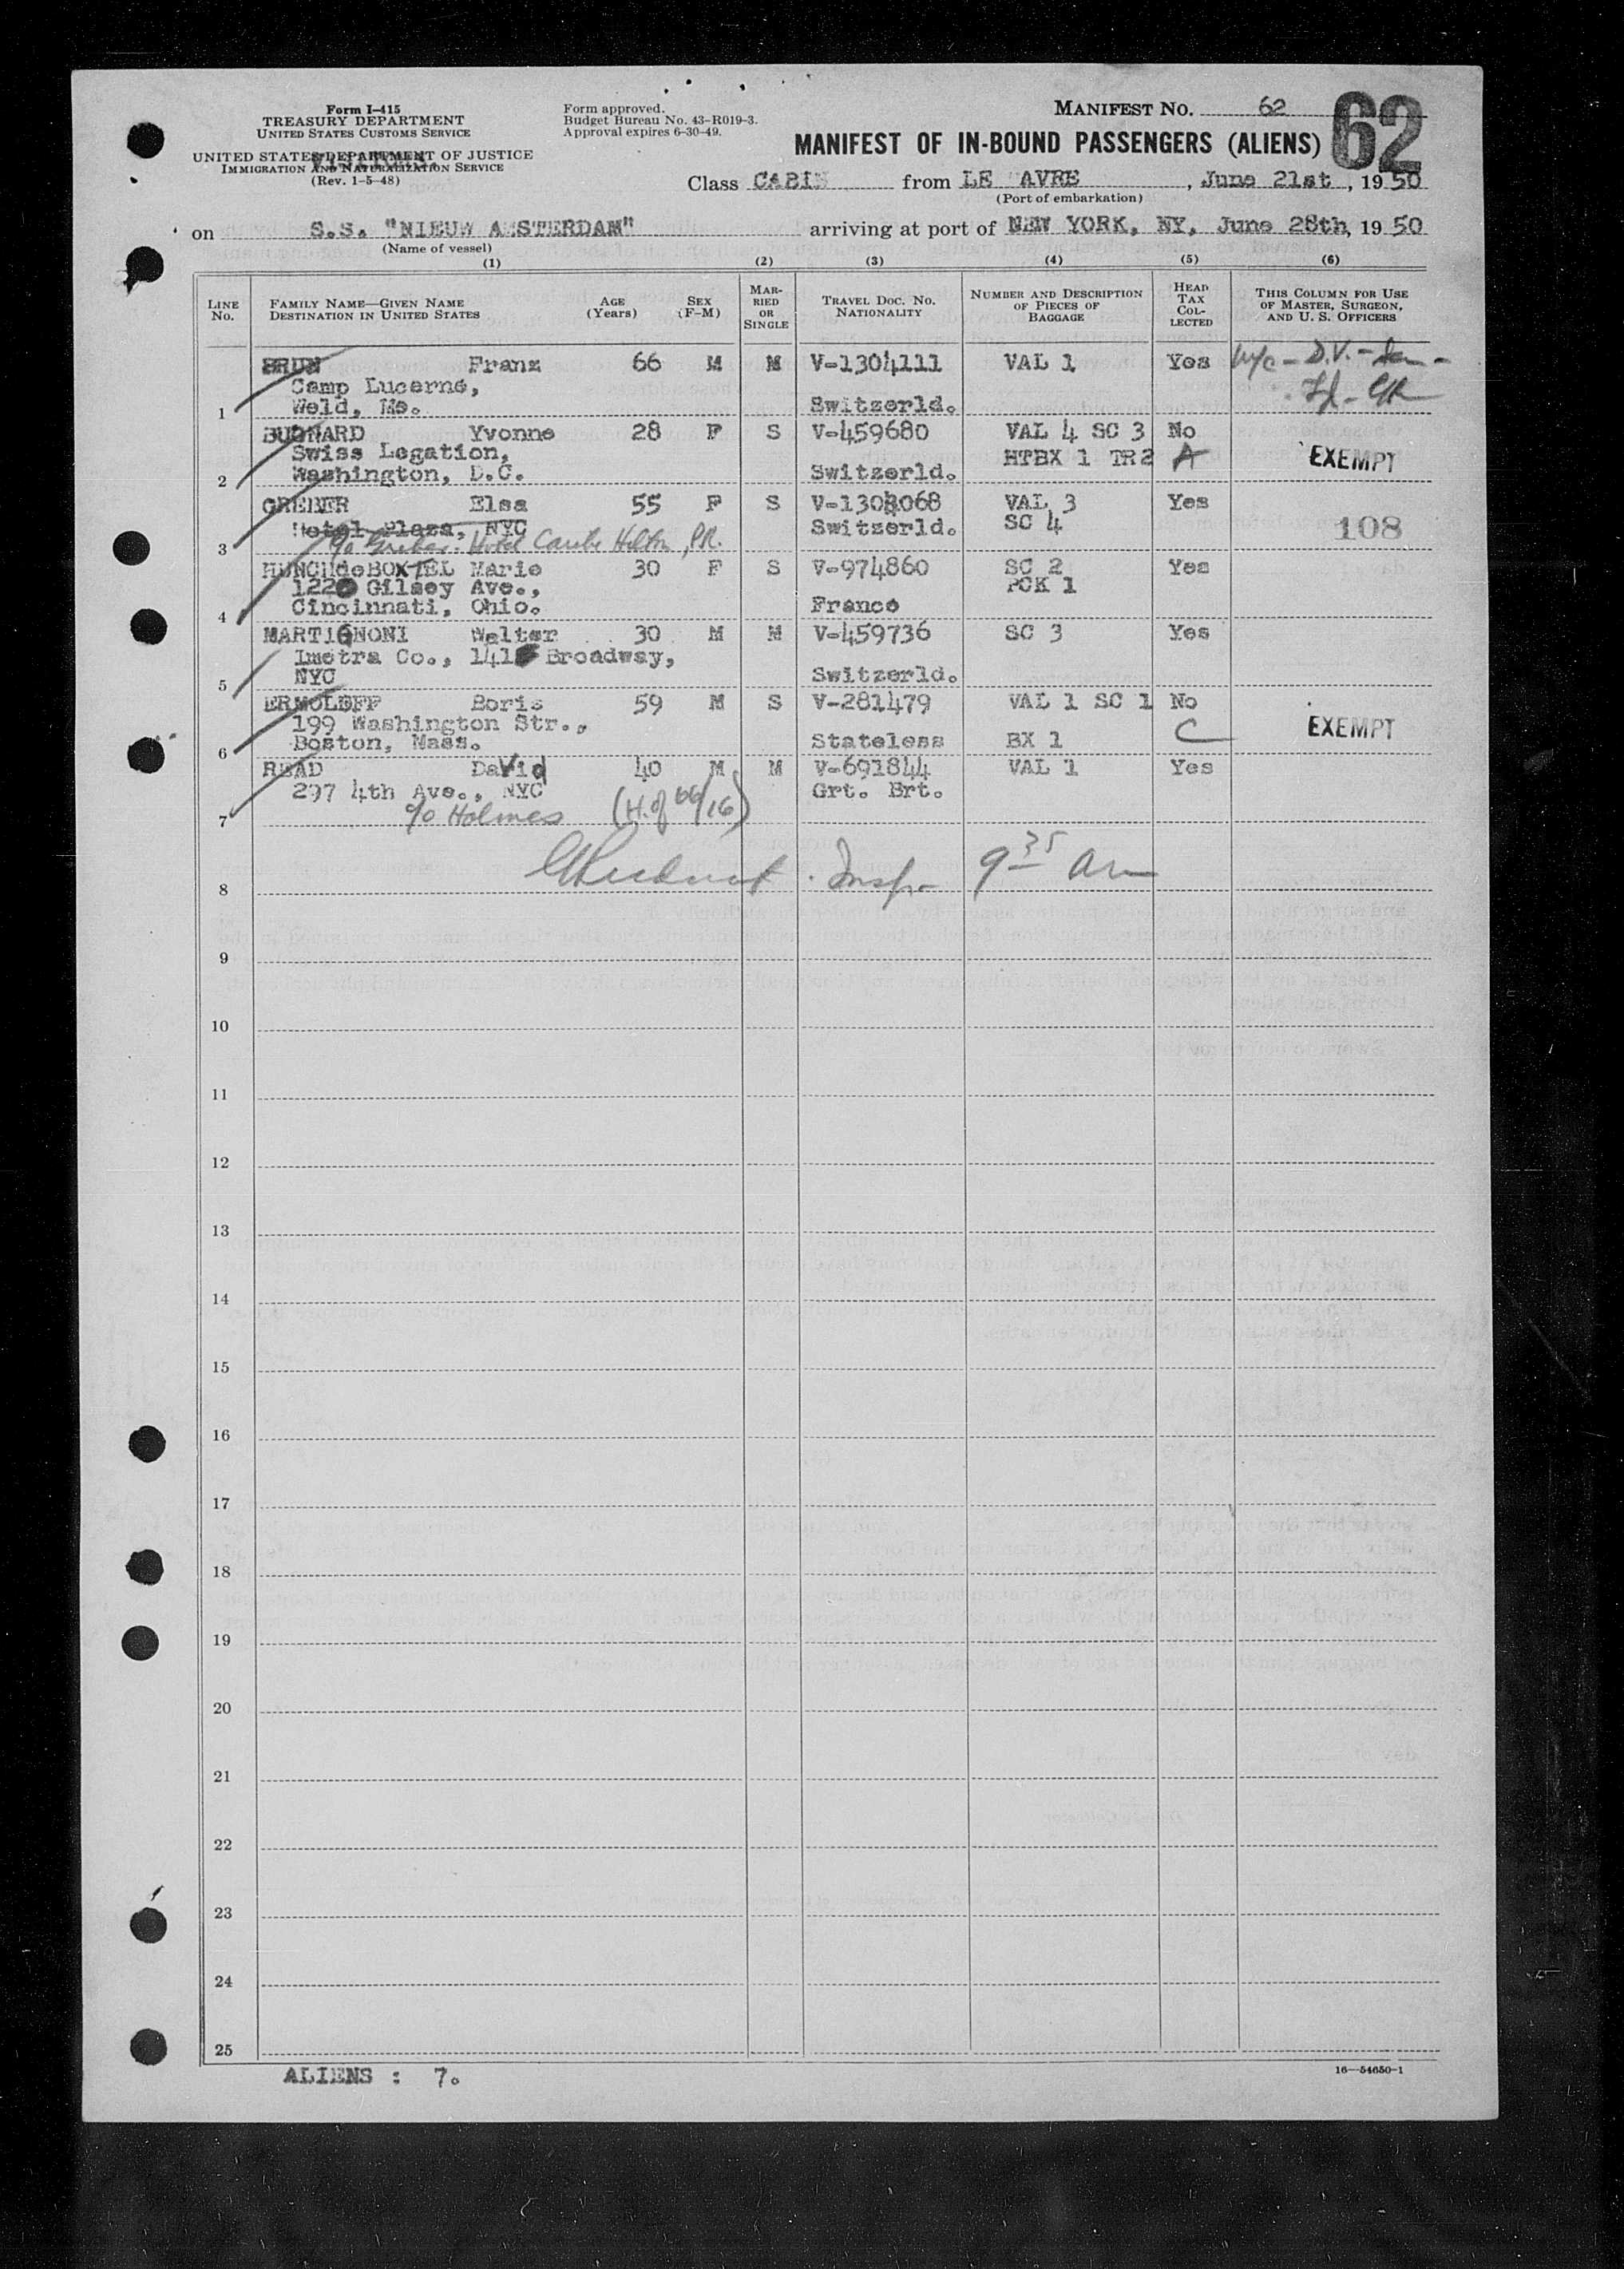 Form I-415
TREASURY DEPARTMENT
UNITED STATES CUSTOMS SERVICE
UNITED STATES DEPARTMENT OF JUSTICE
IMMIGRATION AND NATURALIZATION SERVICE
(Rev. 1-5-48)
Form approved.
Budget Bureau No. 43-R019-3.
Approval expires 6-30-49.
MANIFEST NO. 62
62
MANIFEST OF IN-BOUND PASSENGERS (ALIENS)
Class CABIN from LE AVRE, June 21st, 1950
(Port of embarkation)
on S.S. "NIEUW AMSTERDAM" arriving at port of NEW YORK, NY, June 28th, 1950
(Name of vessel)
(1) (2) (3) (4) (5) (6)
LINE No. FAMILY NAME—GIVEN NAME DESTINATION IN UNITED STATES AGE (Years) SEX (F-M) MARRIED OR SINGLE TRAVEL DOC. NO. NATIONALITY NUMBER AND DESCRIPTION OF PIECES OF BAGGAGE HEAD TAX COLLECTED THIS COLUMN FOR USE OF MASTER, SURGEON, AND U. S. OFFICERS
BRUN Franz 66 M M V-1304111 VAL 1 Yes
Camp Lucerne,
1 Weld, Me. Switzerld.
BUGNARD Yvonne 28 F S V-459680 VAL 4 SC 3 No
Swiss Legation, HTBX 1 TR2 A EXEMPT
2 Washington, D.C. Switzerld.
GREBER Elsa 55 F S V-1303068 VAL 3 Yes
Hotel Plaza, NYC Switzerld. SC 4 108
3 c/o Greber. Hotel Caribe Hilton, P.R.
HUNCH de BOXTEL Marie 30 F S V-974860 SC 2 Yes
122 Gilsey Ave., PCK 1
4 Cincinnati, Ohio. France
MARTIGNONI Walter 30 M M V-459736 SC 3 Yes
Imetra Co., 141 Broadway,
5 NYC Switzerld.
ERMOLOFF Boris 59 M S V-281479 VAL 1 SC 1 No
199 Washington Str., C EXEMPT
6 Boston, Mass. Stateless BX 1
READ David 40 M M V-691844 VAL 1 Yes
297 4th Ave., NYC Grt. Brt.
7 c/o Holmes
8 Insp. 9 35 am
9
10
11
12
13
14
15
16
17
18
19
20
21
22
23
24
25
ALIENS : 7.
16—54650-1